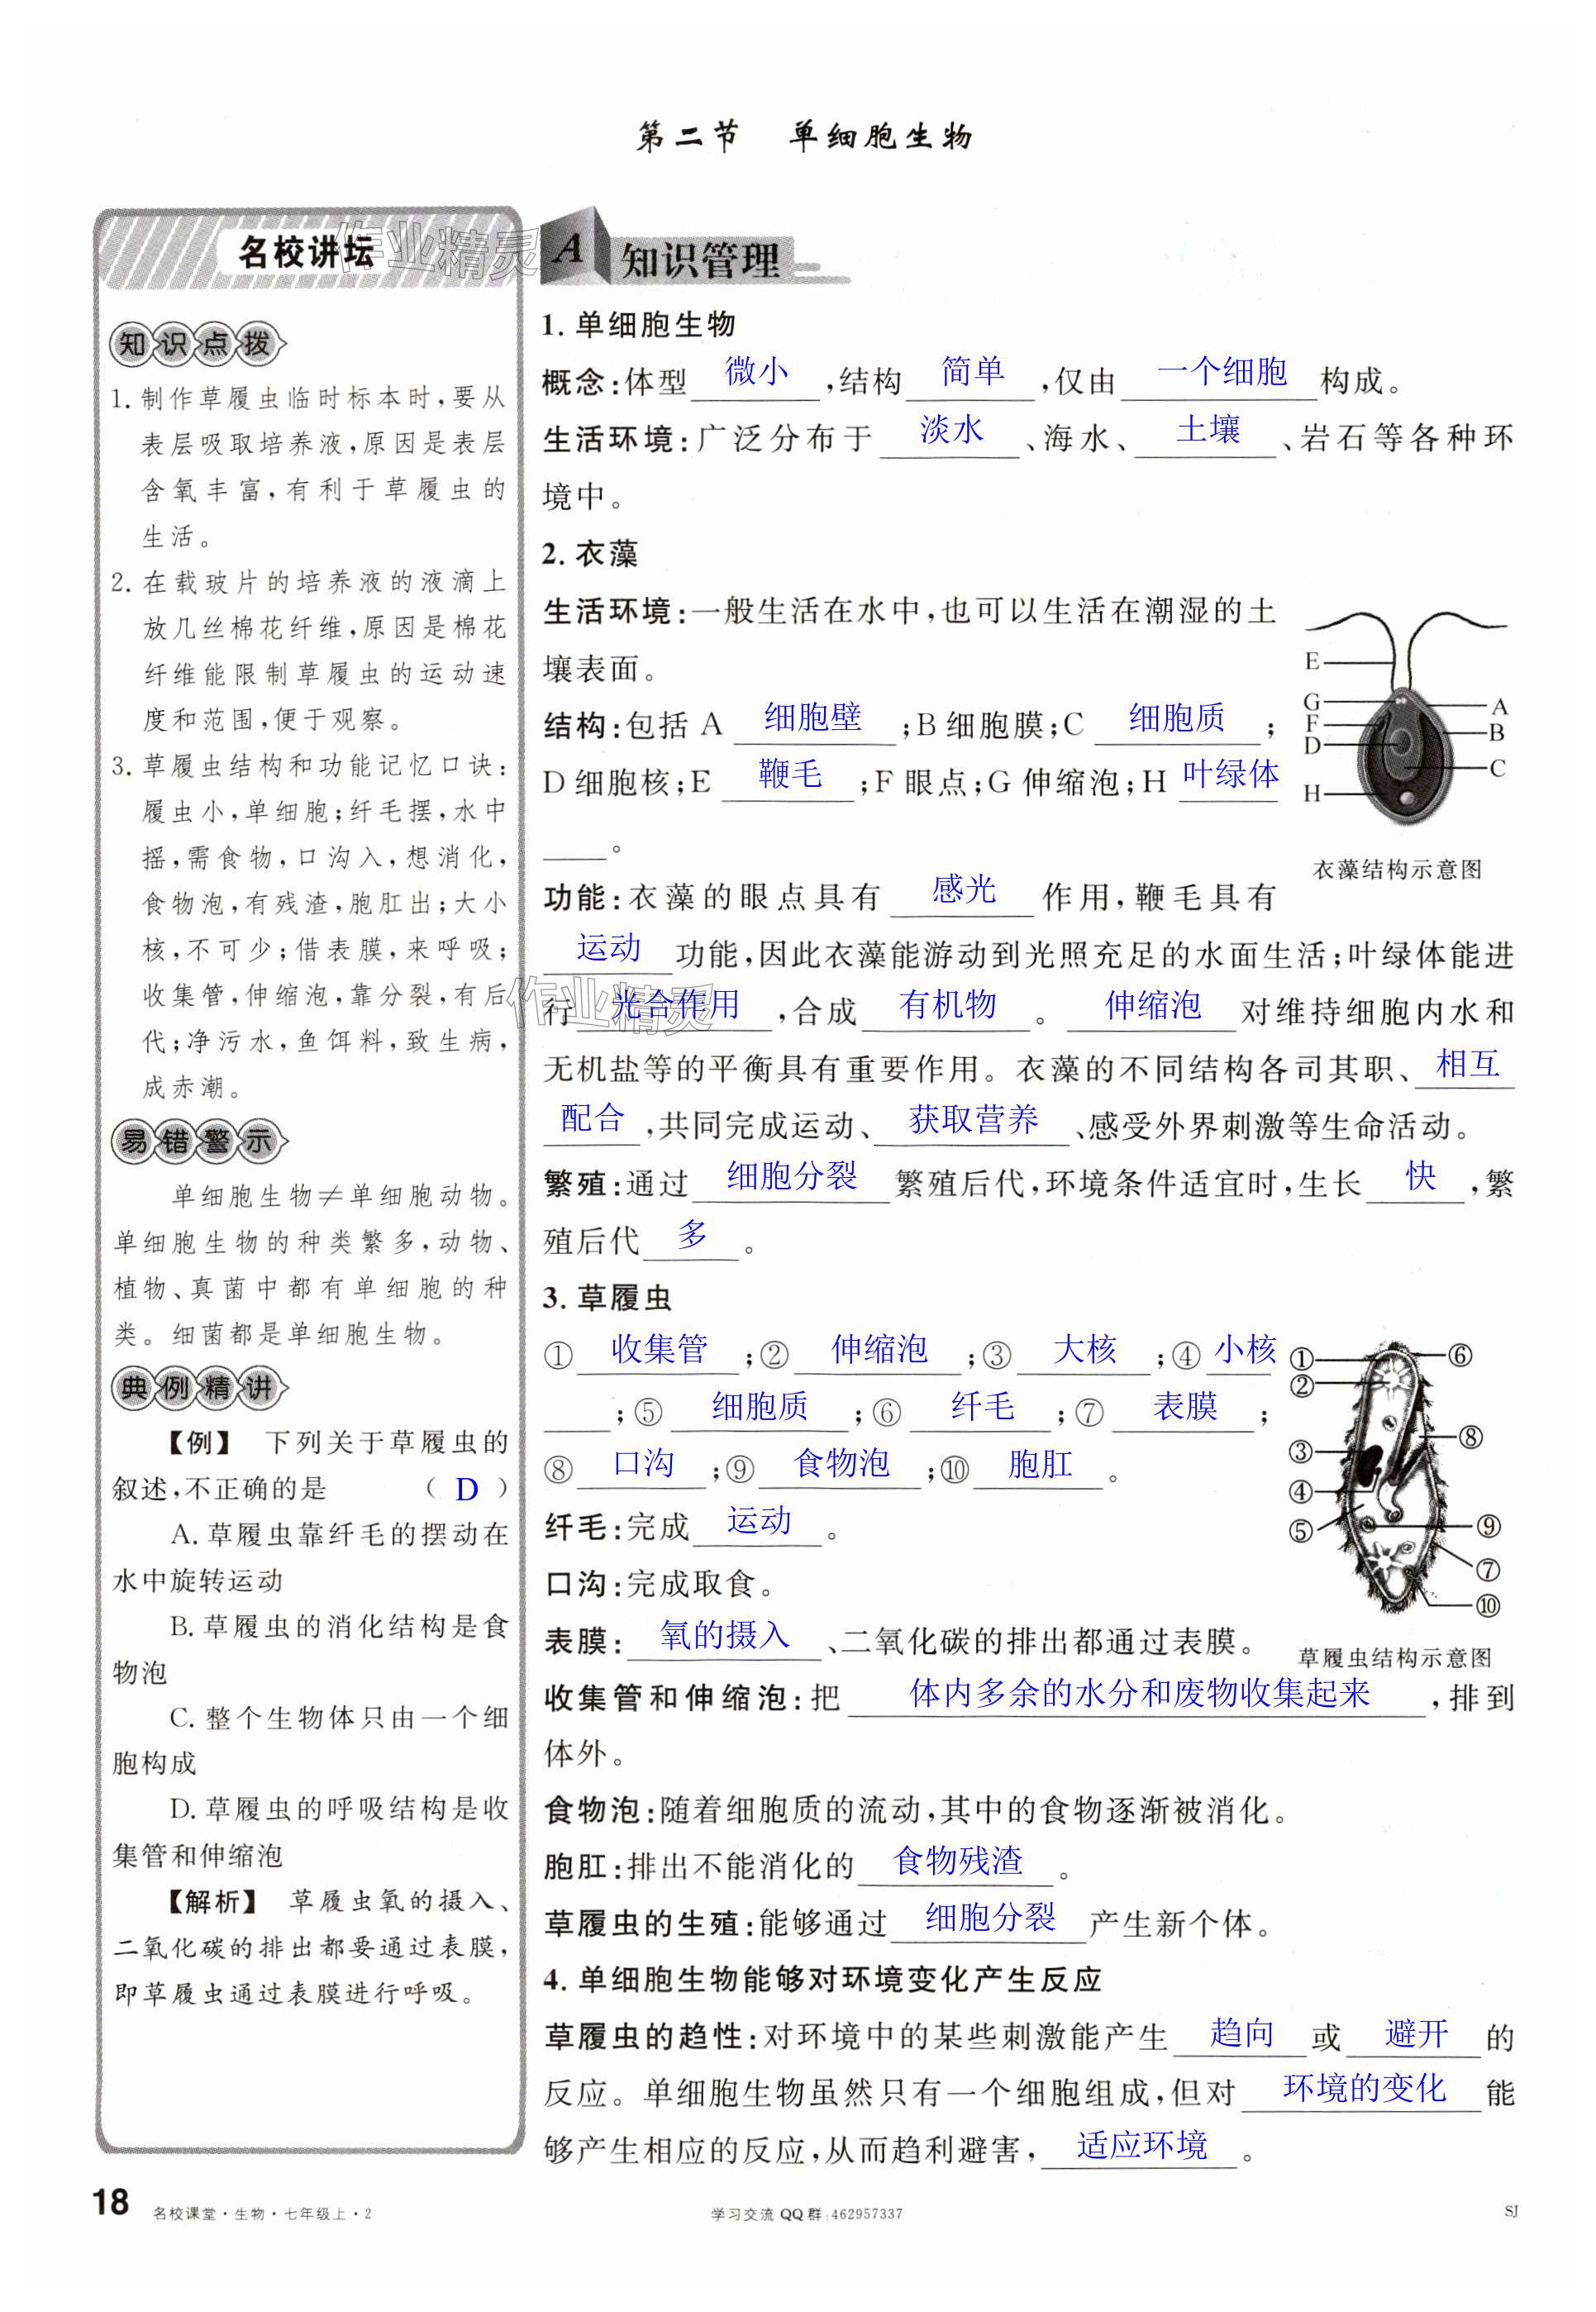 第二节 单细胞生物
名校讲坛
知识点拨
1. 制作草履虫临时标本时,要从
表层吸取培养液,原因是表层
含氧丰富,有利于草履虫的
生活。
2. 在载玻片的培养液的液滴上
放几丝棉花纤维,原因是棉花
纤维能限制草履虫的运动速
度和范围,便于观察。
3. 草履虫结构和功能记忆口诀:
履虫小,单细胞;纤毛摆,水中
摇,需食物,口沟入,想消化,
食物泡,有残渣,胞肛出;大小
核,不可少;借表膜,来呼吸;
收集管,伸缩泡,靠分裂,有后
代;净污水,鱼饵料,致生病,
成赤潮。
易错警示
单细胞生物≠单细胞动物。
单细胞生物的种类繁多,动物、
植物、真菌中都有单细胞的种
类。细菌都是单细胞生物。
典例精讲
【例】 下列关于草履虫的
叙述,不正确的是 ( D )
A. 草履虫靠纤毛的摆动在
水中旋转运动
B. 草履虫的消化结构是食
物泡
C. 整个生物体只由一个细
胞构成
D. 草履虫的呼吸结构是收
集管和伸缩泡
【解析】 草履虫氧的摄入、
二氧化碳的排出都要通过表膜,
即草履虫通过表膜进行呼吸。
作业精灵
A 知识管理
1. 单细胞生物
概念:体型 微小 ,结构 简单 ,仅由 一个细胞 构成。
生活环境:广泛分布于 淡水 、海水、 土壤 、岩石等各种环
境中。
2. 衣藻
生活环境:一般生活在水中,也可以生活在潮湿的土
壤表面。
结构:包括 A 细胞壁 ;B 细胞膜;C 细胞质 ;
D 细胞核;E 鞭毛 ;F 眼点;G 伸缩泡;H 叶绿体
。
E
G
F
D
H
A
B
C
衣藻结构示意图
功能:衣藻的眼点具有 感光 作用,鞭毛具有
运动 功能,因此衣藻能游动到光照充足的水面生活;叶绿体能进
行 光合作用 ,合成 有机物 。 伸缩泡 对维持细胞内水和
作业精灵
无机盐等的平衡具有重要作用。衣藻的不同结构各司其职、 相互
配合 ,共同完成运动、 获取营养 、感受外界刺激等生命活动。
繁殖:通过 细胞分裂 繁殖后代,环境条件适宜时,生长 快 ,繁
殖后代 多 。
3. 草履虫
① 收集管 ;② 伸缩泡 ;③ 大核 ;④ 小核
;⑤ 细胞质 ;⑥ 纤毛 ;⑦ 表膜 ;
⑧ 口沟 ;⑨ 食物泡 ;⑩ 胞肛 。
①
②
③
④
⑤
⑥
⑧
⑨
⑦
⑩
草履虫结构示意图
纤毛:完成 运动 。
口沟:完成取食。
表膜: 氧的摄入 、二氧化碳的排出都通过表膜。
收集管和伸缩泡:把 体内多余的水分和废物收集起来 ,排到
体外。
食物泡:随着细胞质的流动,其中的食物逐渐被消化。
胞肛:排出不能消化的 食物残渣 。
草履虫的生殖:能够通过 细胞分裂 产生新个体。
4. 单细胞生物能够对环境变化产生反应
草履虫的趋性:对环境中的某些刺激能产生 趋向 或 避开 的
反应。单细胞生物虽然只有一个细胞组成,但对 环境的变化 能
够产生相应的反应,从而趋利避害, 适应环境 。
18 名校课堂·生物·七年级上·2
学习交流 QQ 群:462957337
SJ